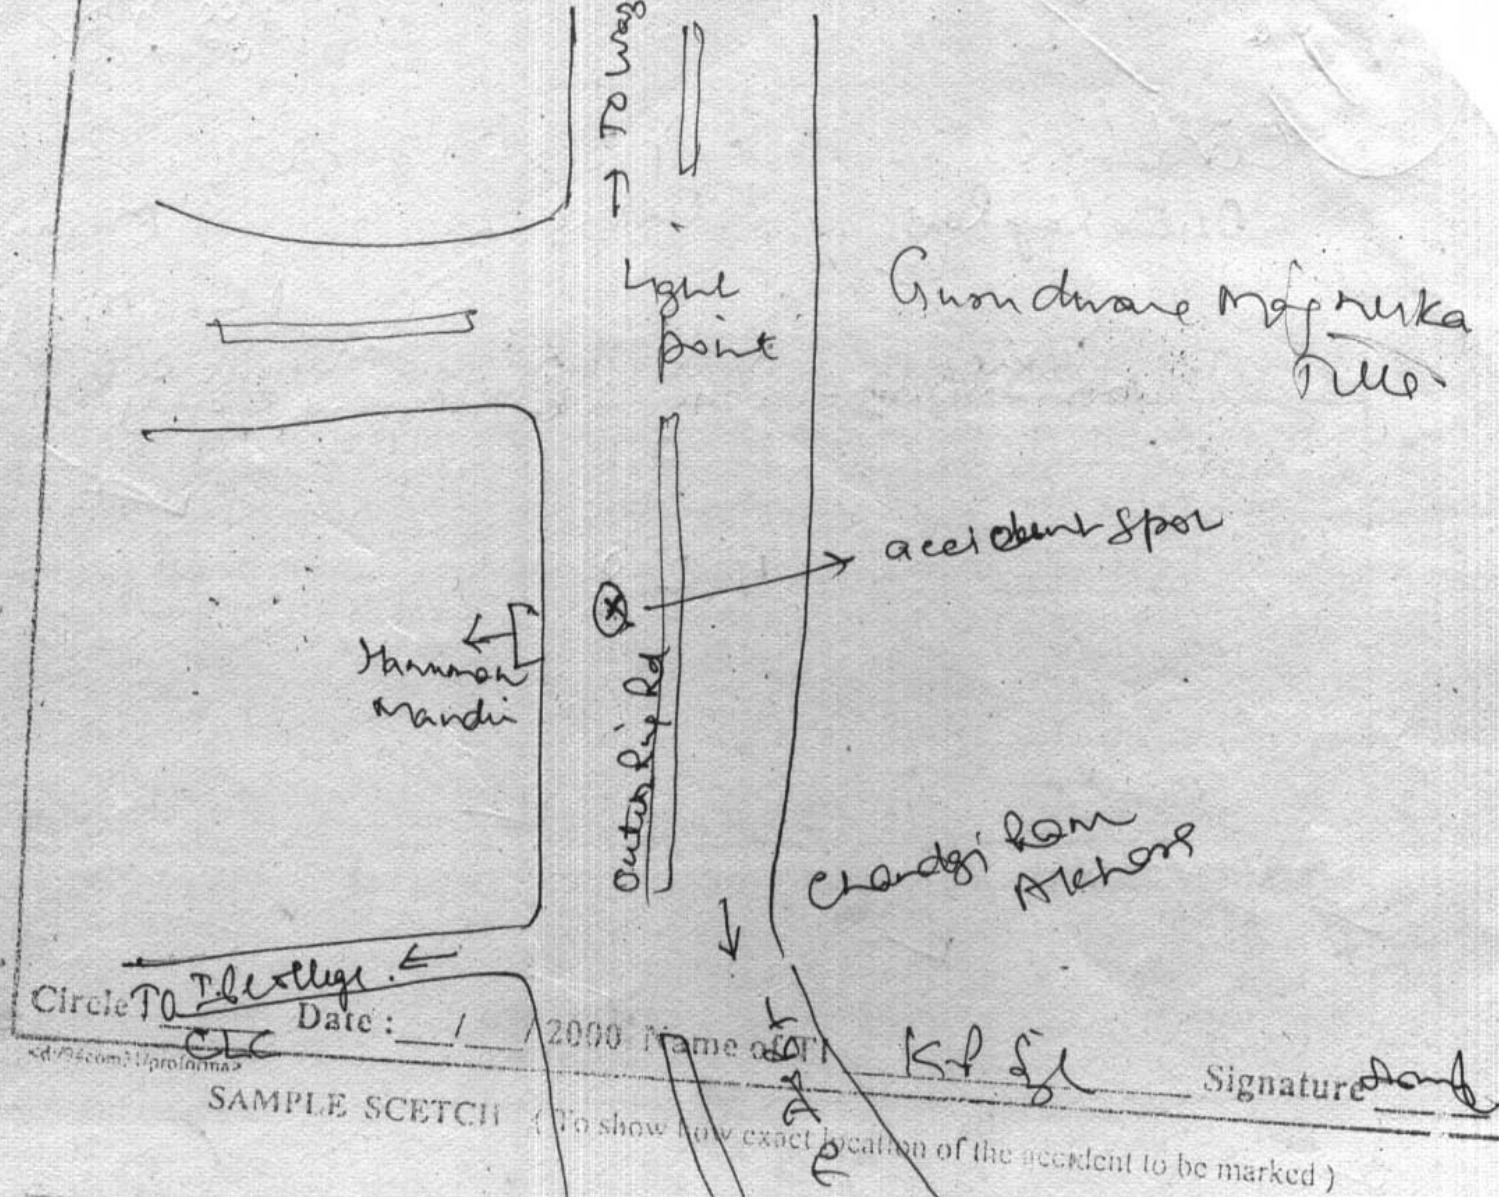 → TO
Light
point
Tilla
accident spot
Hanuman
Mandir
Outer Ring Rd
Chandgi Ram
Akhara
Circle TO College.
CLC
Date : / / 2000 Name of TI
Signature
SAMPLE SCETCH ( To show how exact location of the accident to be marked )